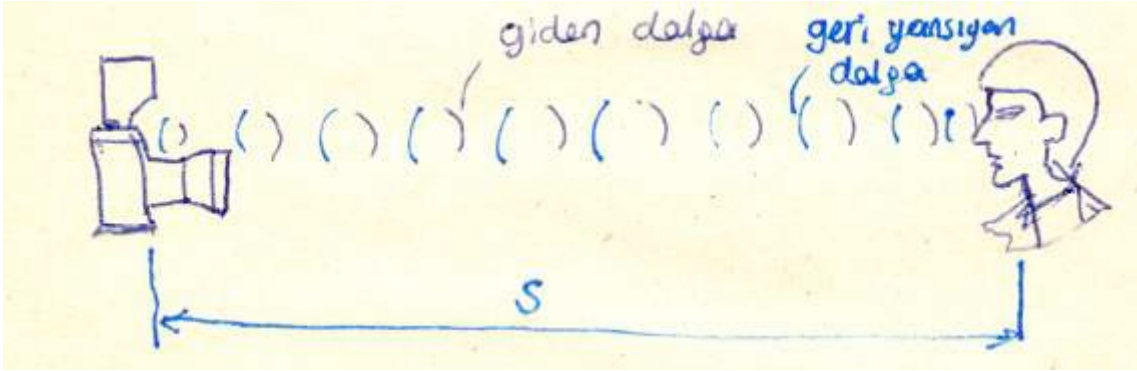 giden dalga
geri yansıyan
dalga
S